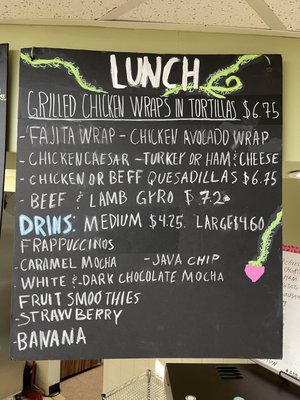 LUNCH
GRILLED CHICKEN WRAPS IN TORTILLAS $6.75
"FAJITA WRAP - CHICKEN AVOCADO WRAP
- CHICKEN CAESAR - TURKEY OR HAM & CHEESE
- CHICKEN OR BEFF QUESADILLAS $6.75
- BEEF & LAMB GYRO $ 7.20
DRINS: MEDIUM $4.25. LARGE$4.60
FRAPPUCCINOS
- CARAMEL MOCHA - JAVA CHIP
- WHITE & - DARK CHOCOLATE MOCHA
FRUIT SMOOTHIES
- STRAWBERRY
- BANANA